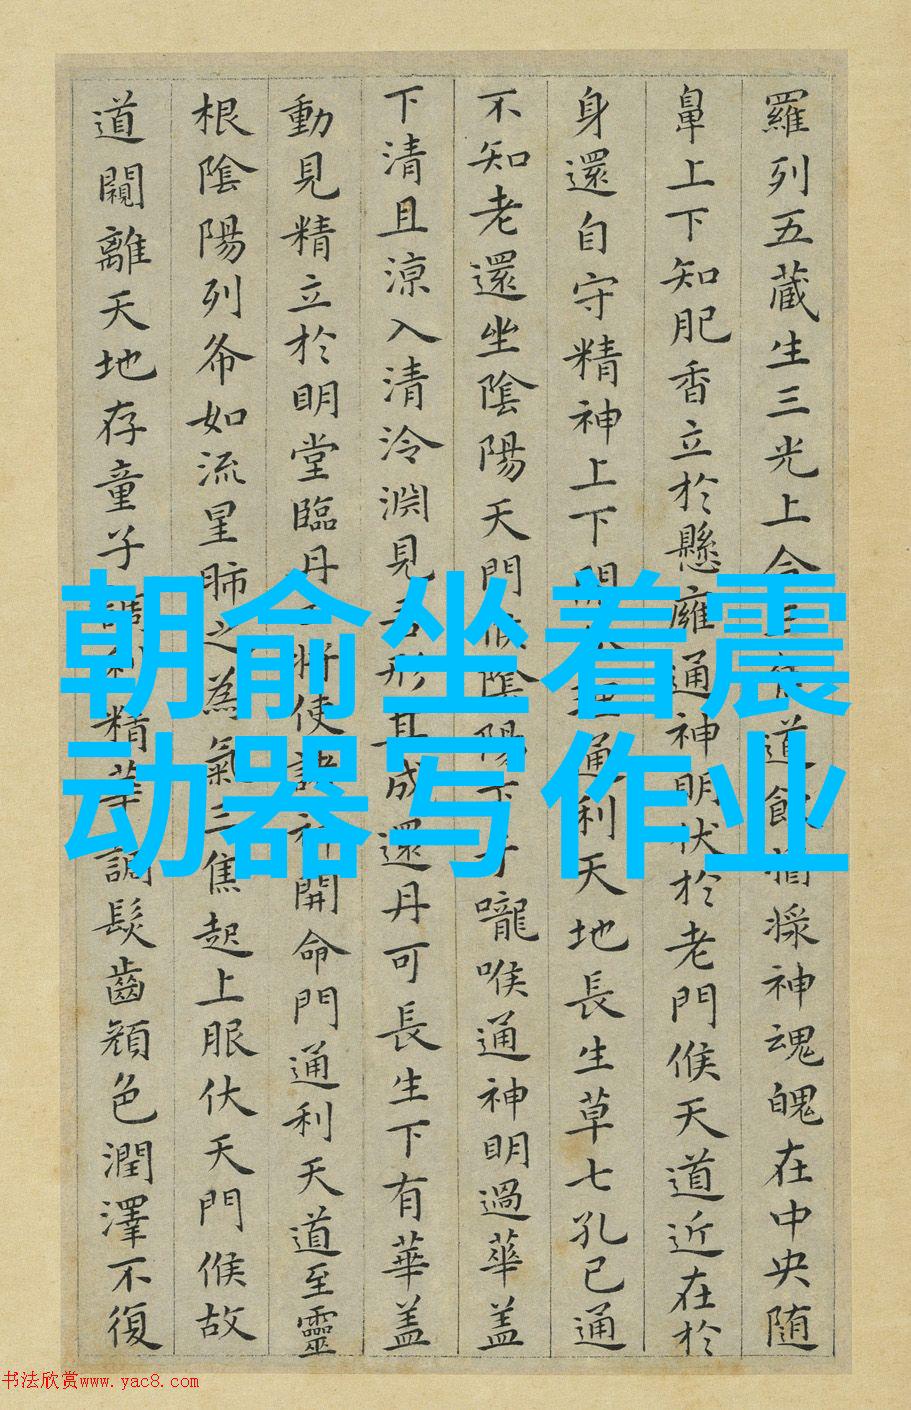 羅列五蔵生三光上道飲神魂魄在中央随
鼻上下知肥香立於懸廱通神明伏於老門候天道近在於
身還自守精神上下通利天地長生草七孔已通
不知老還坐陰陽天門候陰陽下嚨喉通神明過華盖
下清且涼入清泠渊見吾形其成還丹可長生下有華盖
動見精立於明堂臨丹將使諸神開命門通利天道至靈
根陰陽列布如流星肺之為氣三焦起上服伏天門候故
道闚離天地存童子精華調髮齒顔色潤澤不復
朝俞坐着震
动器写作业
书法欣赏www.yac8.com